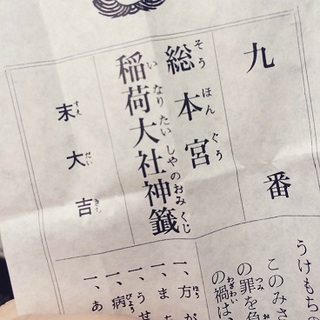 九番
総本宮
そうほんぐう
稲荷大社神籤
いなりたいしやのおみくじ
末大吉
すえだいきち
うけもちの
このみさ
の罪を負
つみ
の禍は
わざわい
一、方が
ほう
一、ま
一、うせ
一、病
びょう
一、あ